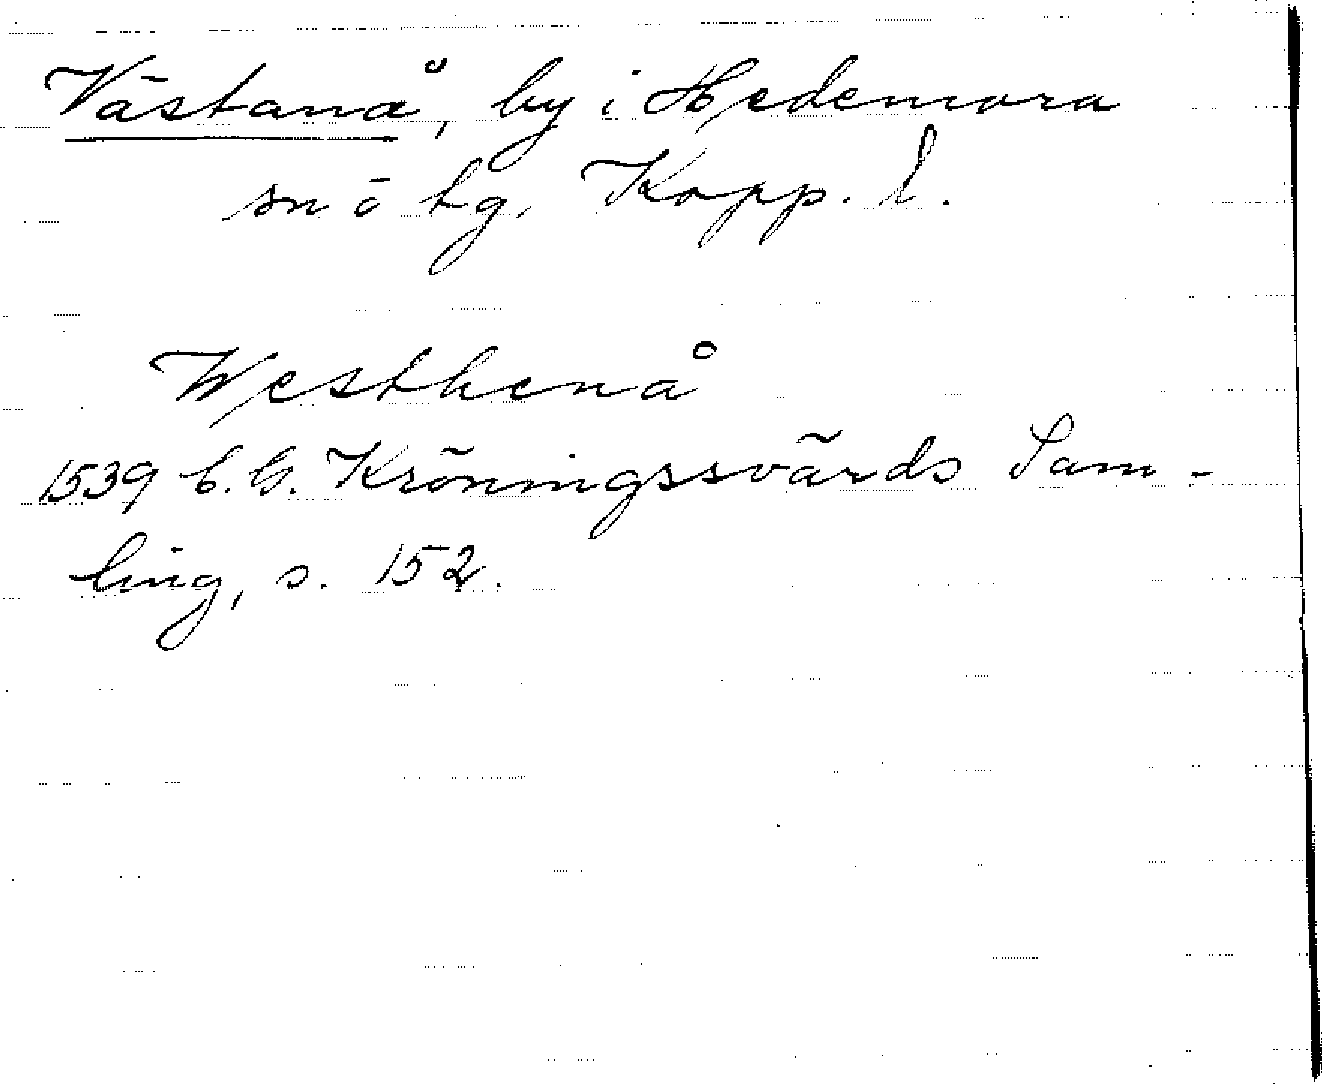 Västanå, by i Hedemora
sn ö tg, Kopp. l.
Westhenå
1539 C. G. Kröningssvärds Sam-
ling, s. 152.